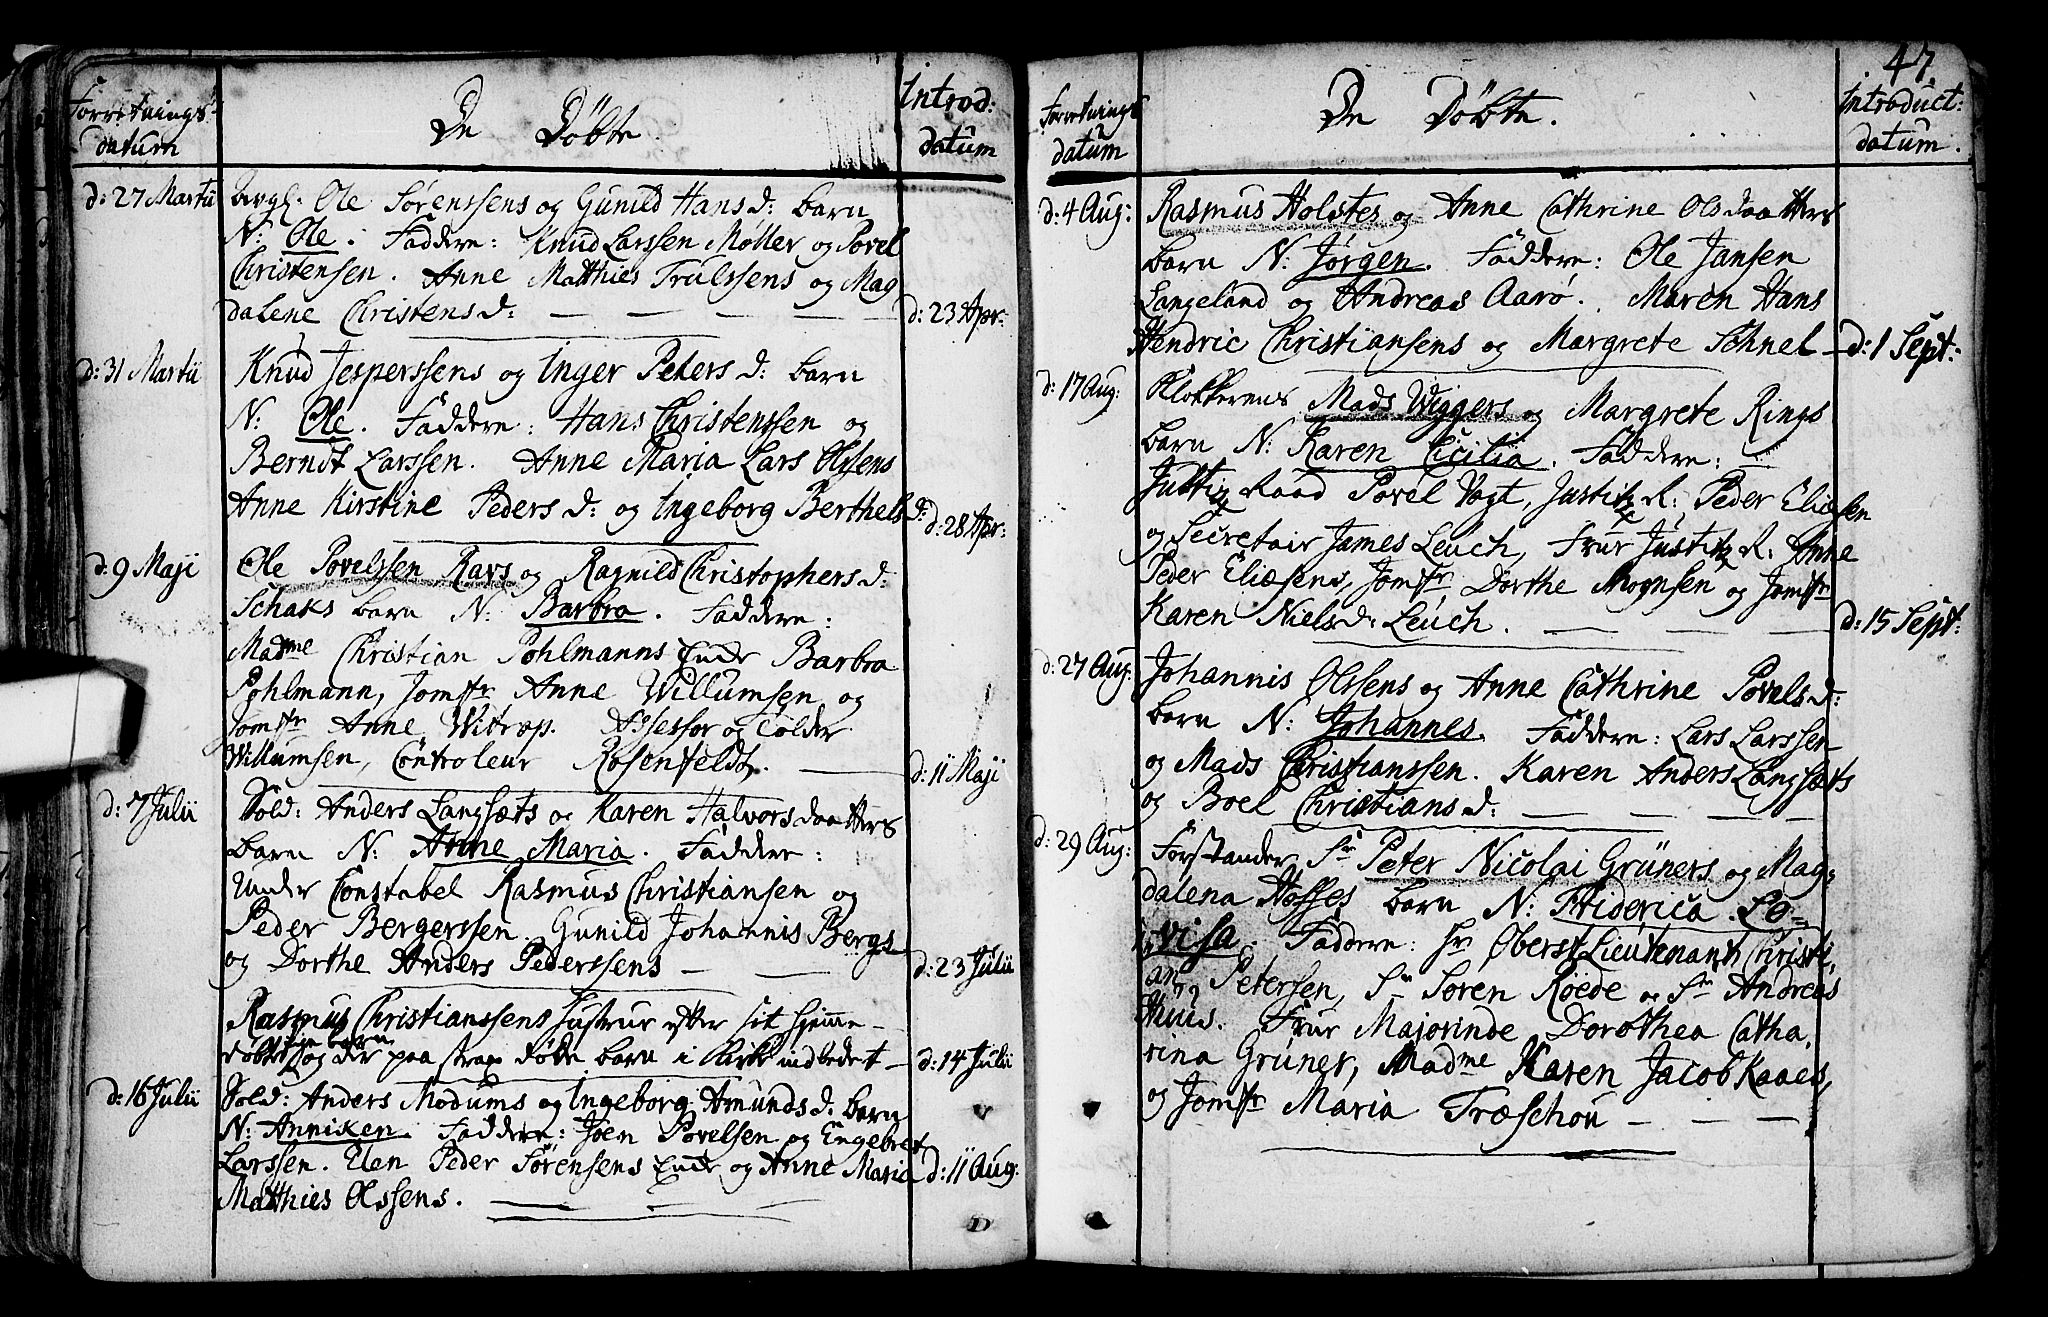 Forretnings
datum
De Döbte.
Introd:
datum
d: 27 Martii
bergl. Ole Sørenssens og Gunild Hans d: barn
N: Ole. Faddere: Knud Larssen Møller og Povel
Christensen. Anne Matthies Trulssens og Mag
dalene Christens d:
d: 23 Apr:
d: 31 Martii
Knud Jesperssens og Inger Peters d: barn
N: Ole. Faddere: Hans Christenssen og
Berndt Larssen. Anne Maria Lars Olssens
Anne Kirstine Peders d: og Ingeborg Berthels d:
d: 28 Apr:
d: 9 Maji
Ole Povelssen Ravs og Ragnild Christophers d:
Schaks barn N: Barbra. Faddere:
Madme Christian Pohlmanns Enke Barbra
Pohlmann, Jomfr Anne Willumsen og
Jomfr Anne Wistrop. Assessor og Tolder
Willumsen, Controleur Rosenfeldt.
d: 11 Maji
d: 7 Julii
Sold: Anders Langsæts og Karen Halvors daatters
barn N: Anne Maria. Faddere:
Under Constabel Rasmus Christiansen og
Peder Bergerssen. Gunild Johannis Bergs
og Dorthe Anders Pederssens
d: 23 Julii
Rasmus Christianssens Hustrue efter sit hjemme
døbte barn og der paa strax døde barn i Kirke indledet
d: 14 Julii
d: 16 Julii
Sold: Anders Modums og Ingeborg Amunds d: barn
N: Anniken. Faddere: Joen Povelsen og Engebret
Larssen. Elen Peder Sørensens Enke og Anne Maria
Matthies Olssens.
d: 11 Aug:
47.
Forretnings
datum
De Döbte.
Introduct:
datum.
d: 4 Aug:
Rasmus Holstes og Anne Cathrine Olsdaatters
barn N: Jørgen. Faddere: Ole Jansen
Langeland og Andreas Aarø. Maren Hans
Hendric Christiansens og Margrete Schnel
d: 1 Sept:
d: 17 Aug:
Klokkerens Mads Wiggers og Margrete Rings
barn N: Karen Cicilia. Faddere:
Justiz Raad Povel Vogt, Justiz R: Peder Eliesen
og Secretair James Leuch, Frur Justiz R: Anne
Peder Eliæsens, Jomfr Dorthe Mognsen og Jomfr
Karen Niels d: Leuch.
d: 15 Sept:
d: 27 Aug:
Johannis Olssens og Anne Cathrine Povels d:
barn N: Johannes. Faddere: Lars Larssen
og Mads Christianssen. Karen Anders Langsæts
og Boel Christians d:
d: 29 Aug:
Forstander Sr Peter Nicolai Grüners og Mag,
dalena Hosses barn N: Friderica Lo-
visa. Faddere: Hr Oberst Lieutenant Christi,
an Petersen, Sr Søren Röede og Sr Andreas
Huus. Frur Majorinde Dorothea Catha,
rina Grüner, Madme Karen Jacob Kaaes,
og Jomfr Maria Træschou
D